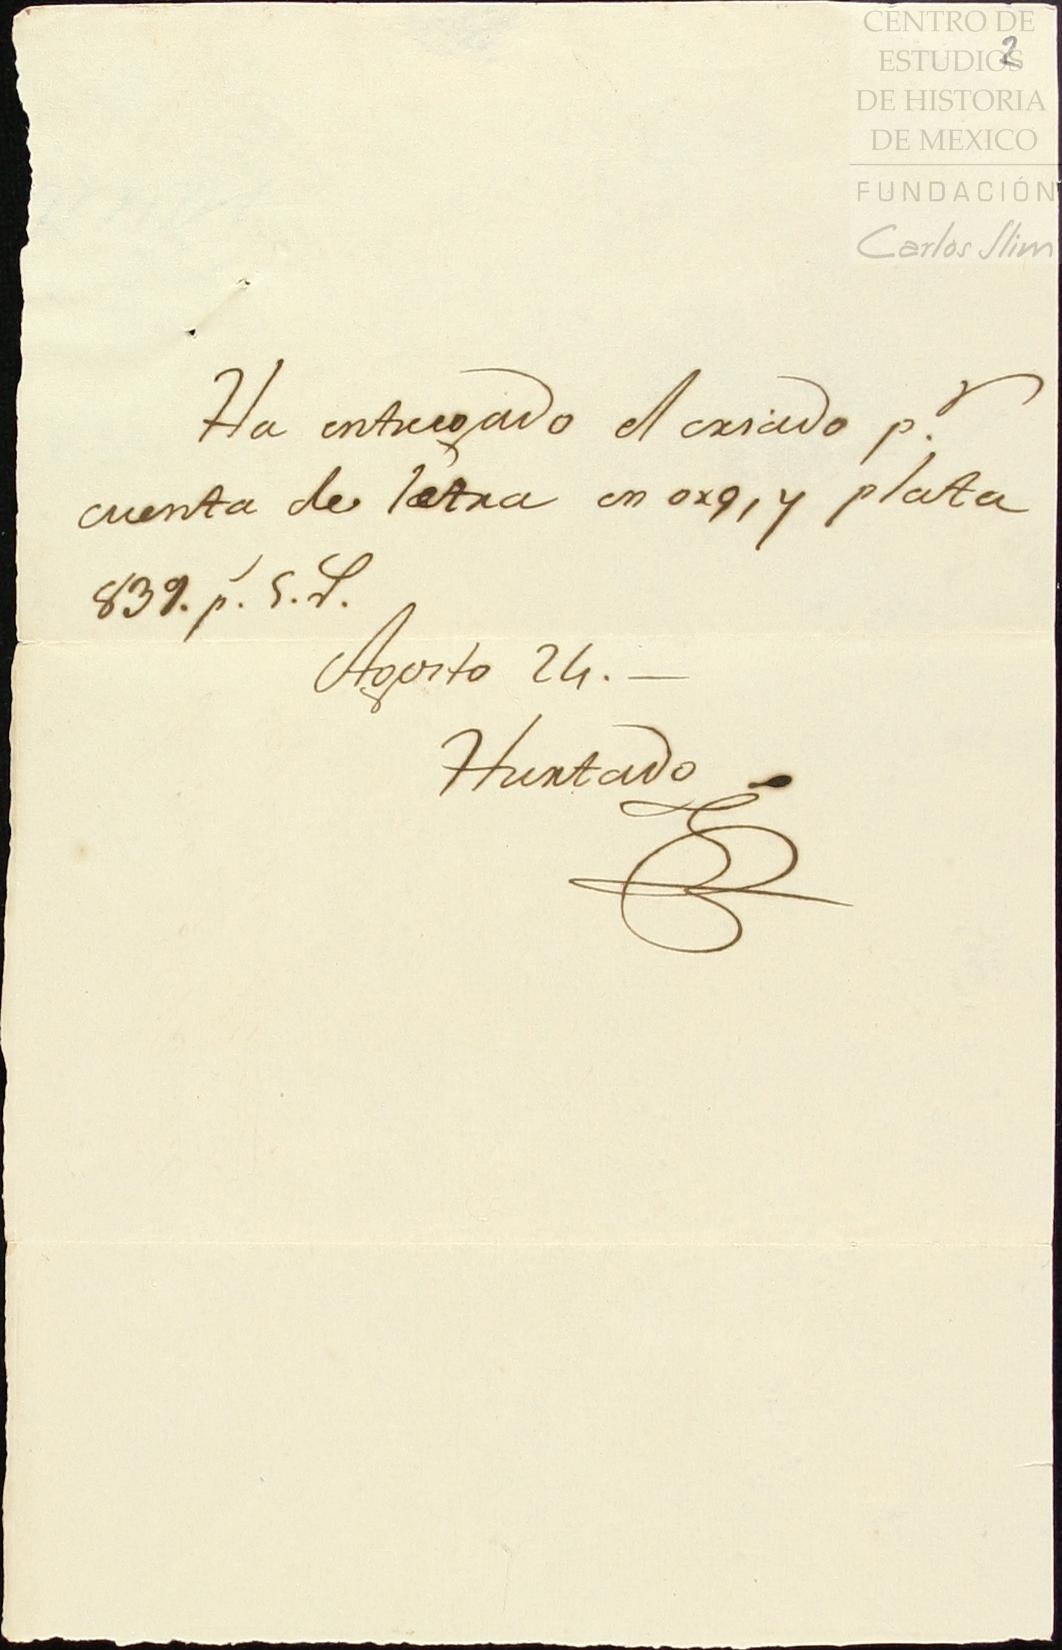 CENTRO DE
ESTUDIOS
DE HISTORIA
DE MEXICO
FUNDACIÓN
Carlos Slim
2
Ha entregado el criado p.r
cuenta de letra en oro, y plata
839. p.s S. S.
Agosto 24. —
Hurtado